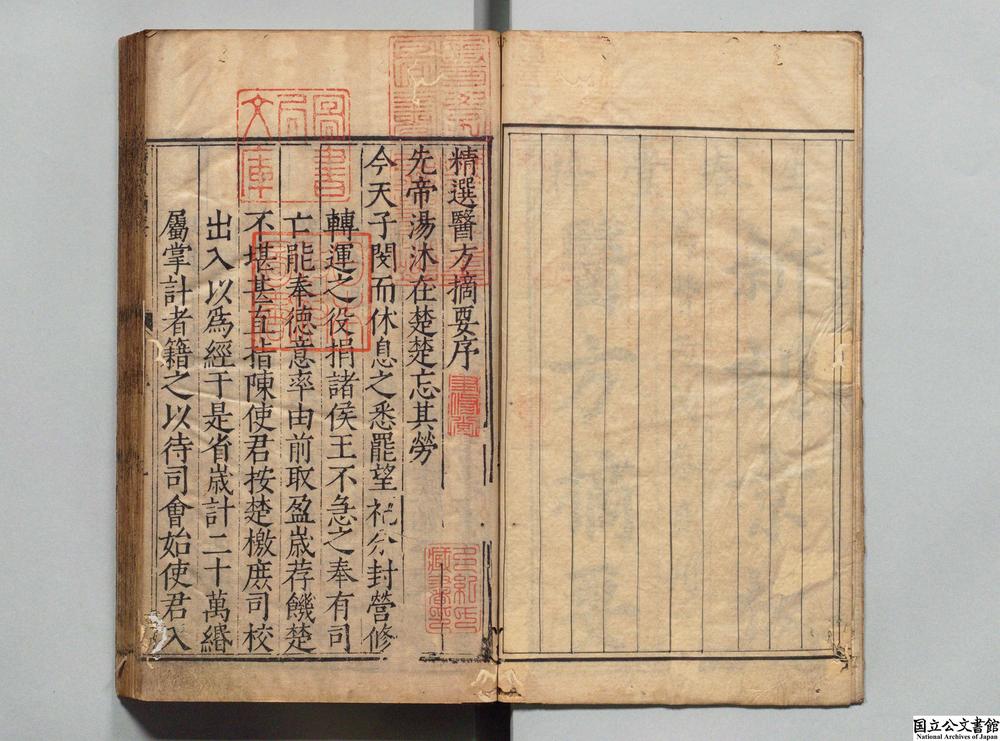 精選醫方摘要序
先帝湯沐在楚楚忘其勞
今天子閔而休息之悉罷望祀分封營修
轉運之役捐諸侯王不急之奉有司
亡能奉德意率由前取盈歲荐饑楚
不堪甚直指陳使君按楚檄庶司校
出入以爲經于是省歲計二十萬緡
屬掌計者籍之以待司會始使君入
圖書
局
文庫
国立公文書館
National Archives of Japan